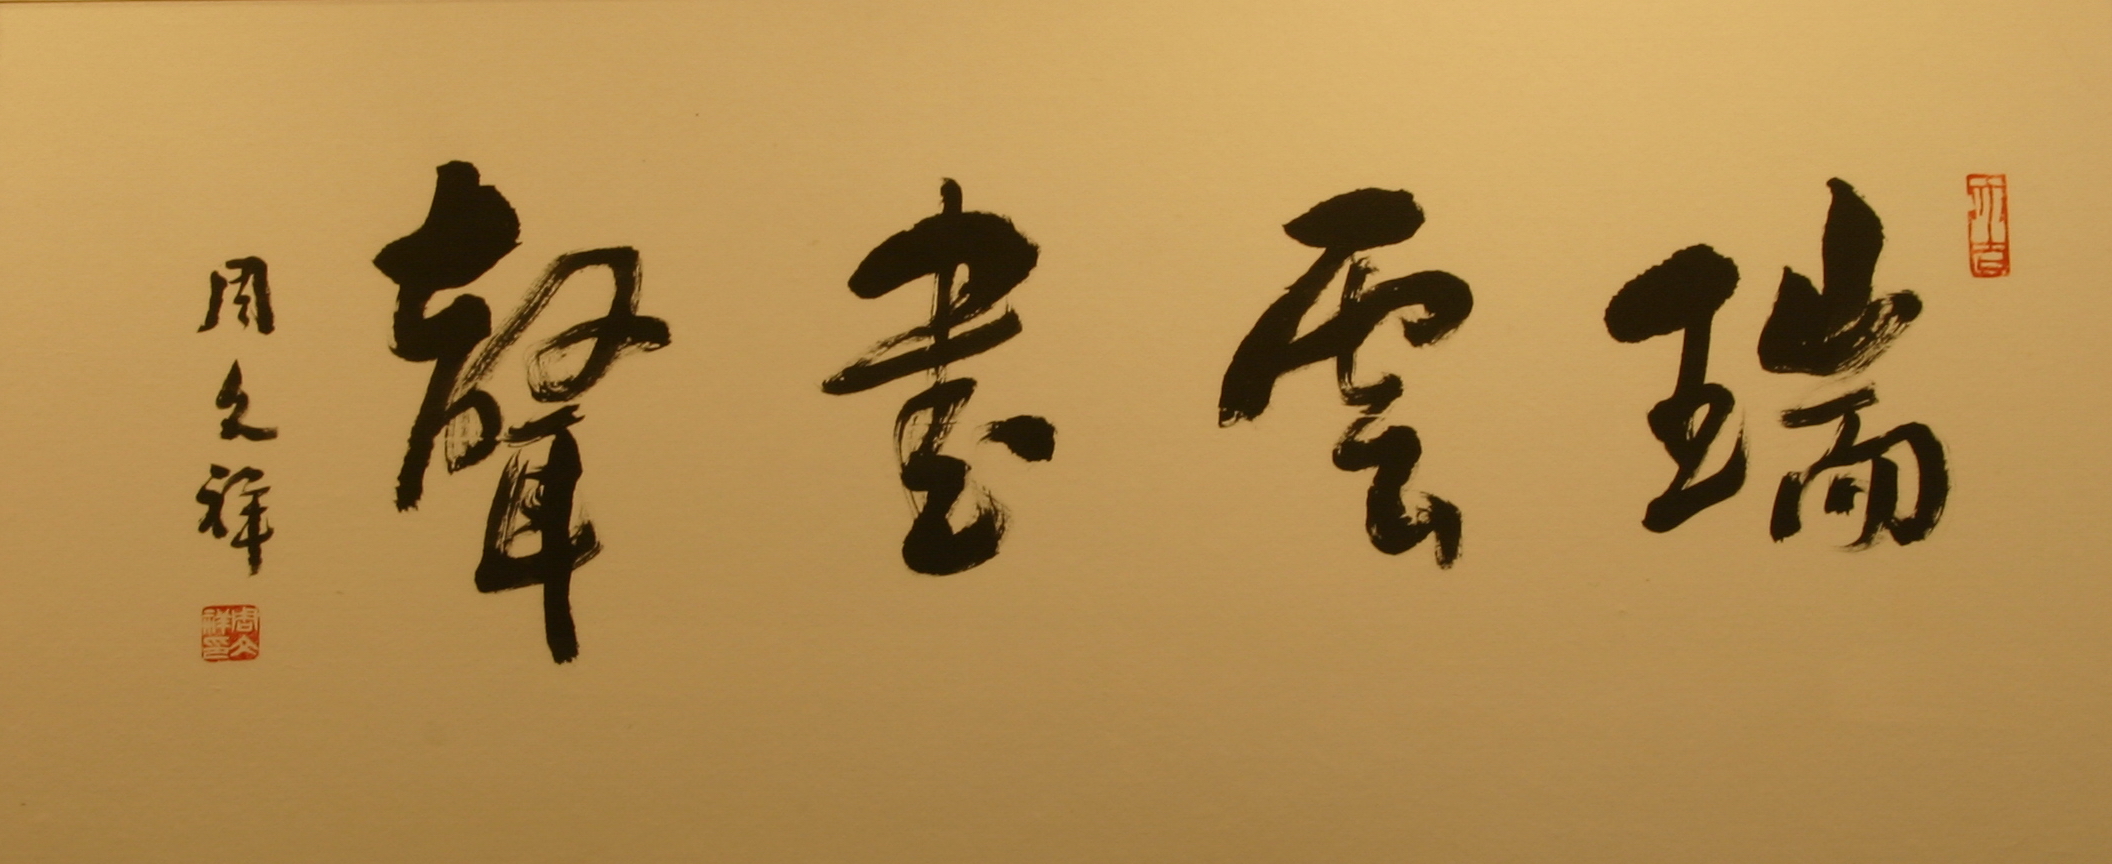 瑞雲書聲
周文祥
周文祥印